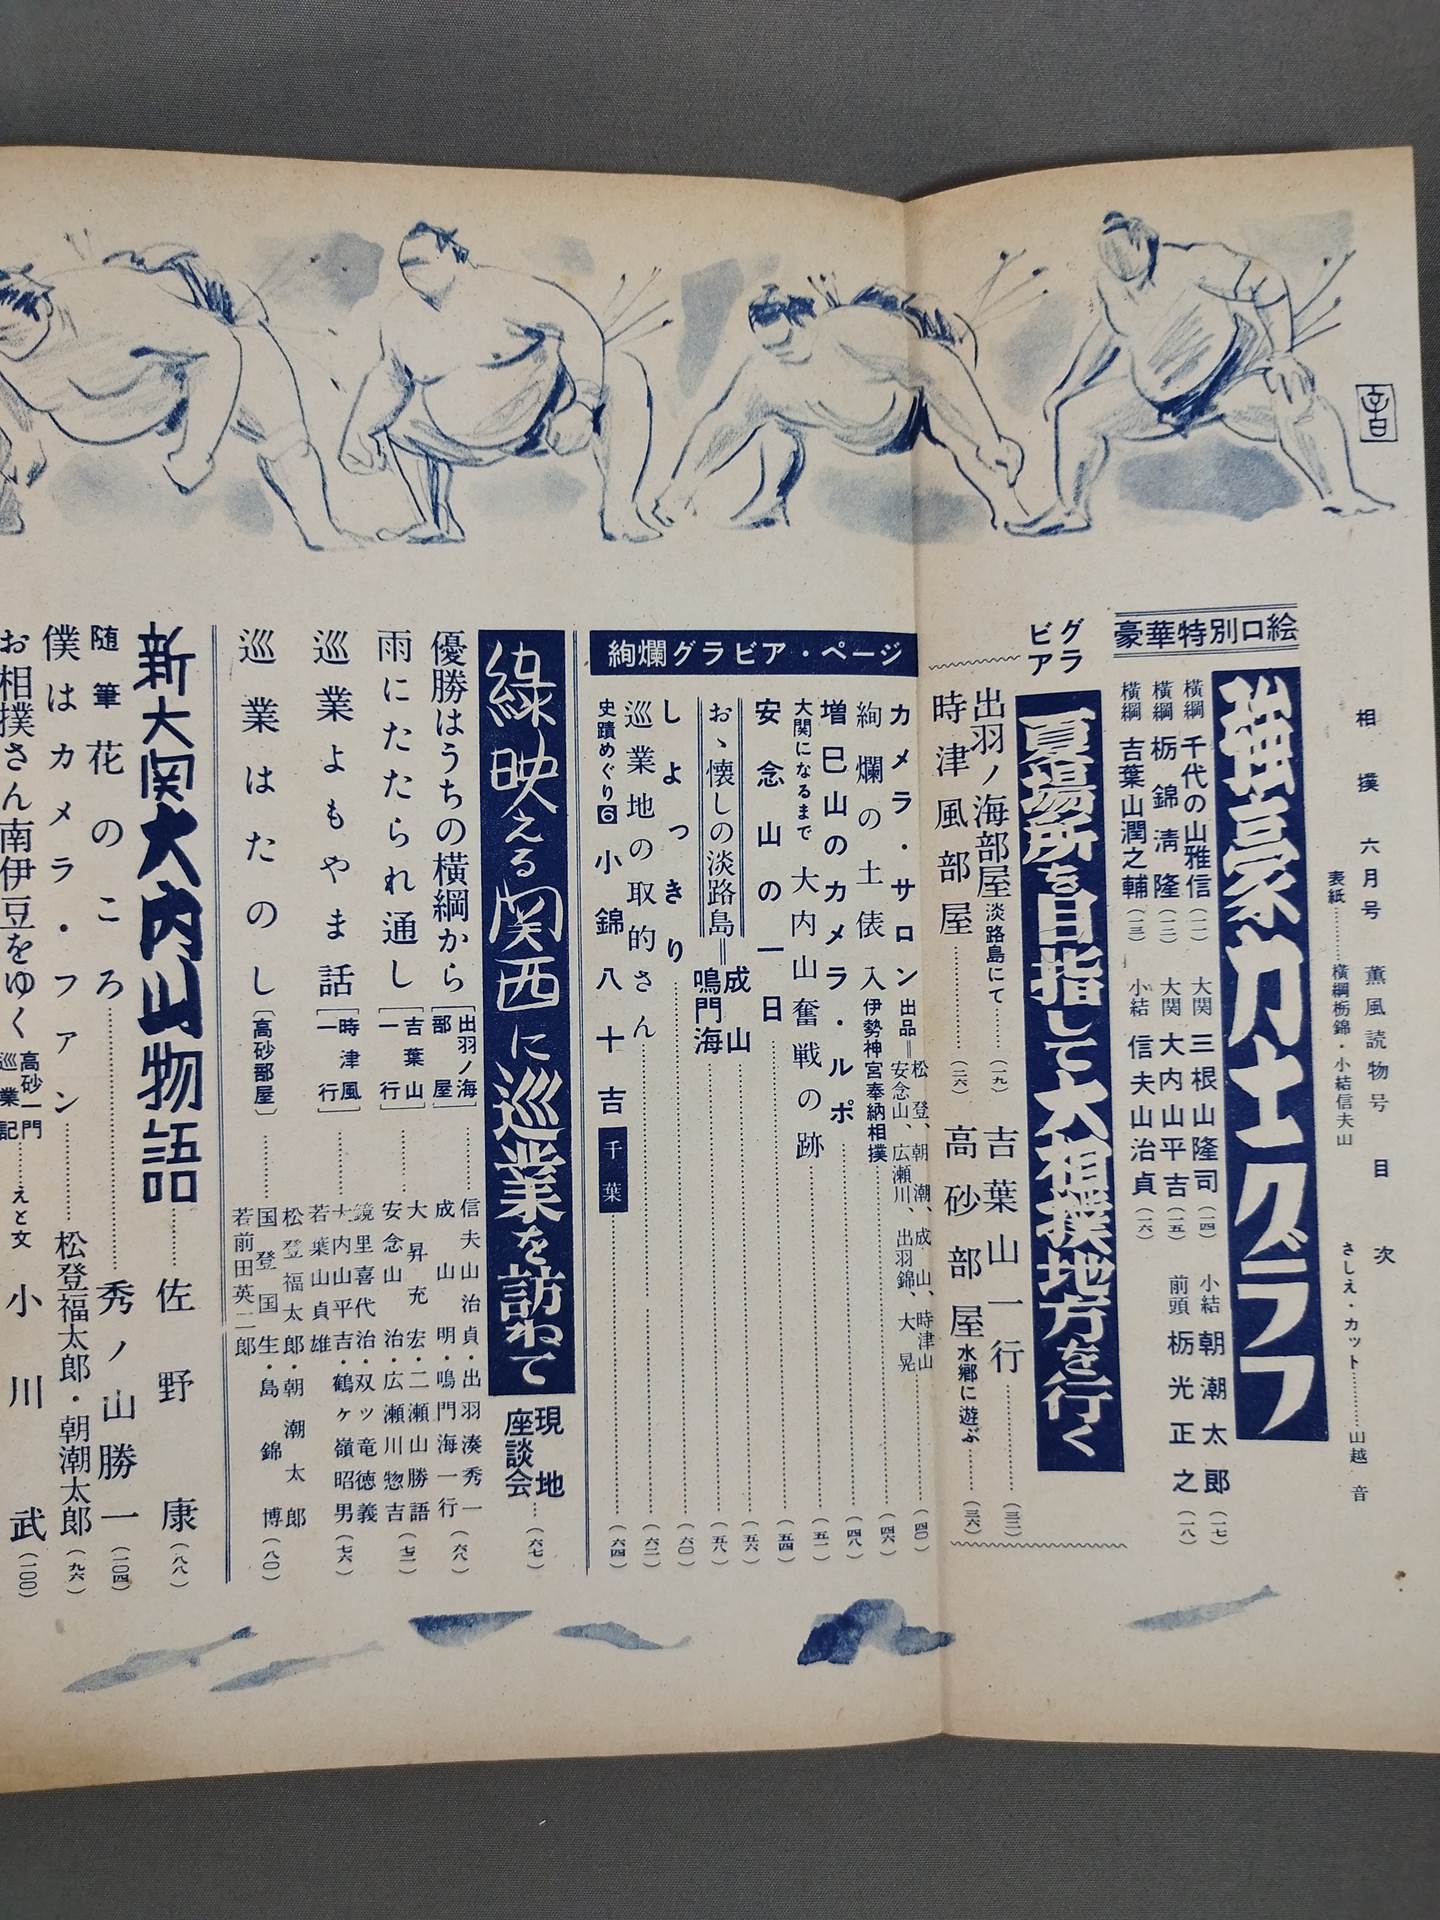 相撲 六月号 薫風読物号 目次
表紙………横綱栃錦・小結信夫山
さしえ・カット………山越 音
豪華特別口絵
強豪力士グラフ
横綱 千代の山雅信(一一)
横綱 栃錦清隆(一二)
横綱 吉葉山潤之輔(一三)
大関 三根山隆司(一四)
大関 大内山平吉(一五)
小結 信夫山治貞(一六)
小結 朝潮太郎(一七)
前頭 栃光正之(一八)
グラビア
夏場所を目指して大相撲地方を行く
出羽ノ海部屋 淡路島にて………(一九)
時津風部屋………(二六)
吉葉山一行………(三二)
高砂部屋 水郷に遊ぶ………(三六)
絢爛グラビア・ページ
カメラ・サロン 出品=松登、朝潮、成山、時津山 安念山、広瀬川、出羽錦、大晃(四〇)
絢爛の土俵入 伊勢神宮奉納相撲………(四六)
増巳山のカメラ・ルポ………(四八)
大関になるまで 大内山奮戦の跡………(五一)
安念山の一日………(五四)
おゝ懐しの淡路島=成山 鳴門海………(五六)
しょっきり………(六〇)
巡業地の取的さん………(六二)
史蹟めぐり6 小錦八十吉 千葉………(六四)
緑映える関西に巡業を訪ねて 現地座談会…(六七)
優勝はうちの横綱から[出羽ノ海部屋]………信夫山治貞・出羽湊秀一 成山明・鳴門海一行(六八)
雨にたたられ通し[吉葉山一行]………大昇充宏・二瀬山勝語 安念山治・広瀬川惣吉(七二)
巡業よもやま話[時津風一行]………鏡里喜代治・双ッ竜徳義 大内山平吉・鶴ヶ嶺昭男 若葉山貞雄(七六)
巡業はたのし[高砂部屋]………松登福太郎・朝潮太郎 国登国生・島錦博 若前田英一郎(八〇)
新大関大内山物語………佐野康(八八)
随筆 花のころ………秀ノ山勝一(一〇四)
僕はカメラ・ファン………松登福太郎・朝潮太郎(九六)
お相撲さん南伊豆をゆく 高砂一門巡業記……えと文 小川武(一〇〇)